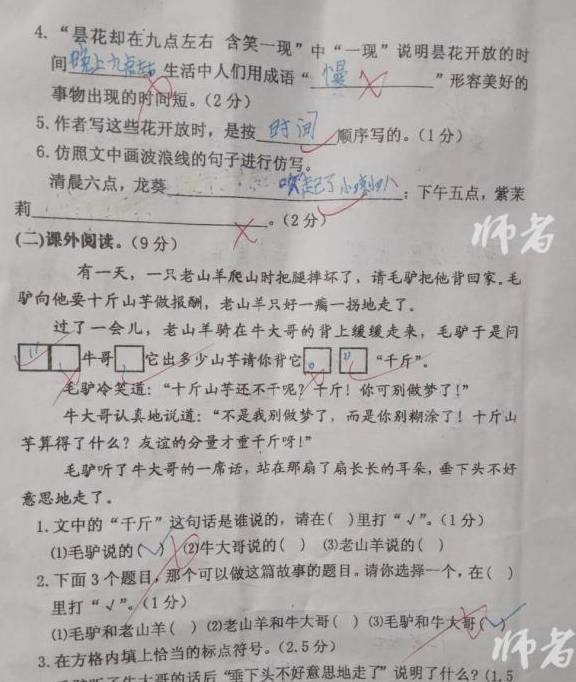 4. “昙花却在九点左右 含笑一现”中“一现”说明昙花开放的时
间晚上九点左右生活中人们用成语“慢”形容美好的
事物出现的时间短。(2分)
5. 作者写这些花开放时，是按时间顺序写的。(1分)
6. 仿照文中画波浪线的句子进行仿写。
清晨六点，龙葵吹起了小喇叭；下午五点，紫茉
莉。(2分)
师者
(二)课外阅读。(9分)
有一天，一只老山羊爬山时把腿摔坏了，请毛驴把他背回家。毛
驴向他要十斤山芋做报酬，老山羊只好一瘸一拐地走了。
过了一会儿，老山羊骑在牛大哥的背上缓缓走来，毛驴于是问
牛哥它出多少山芋请你背它“千斤”。
毛驴冷笑道：“十斤山芋还不干呢？千斤！你可别做梦了！”
牛大哥认真地说道：“不是我别做梦了，而是你别糊涂了！十斤山
芋算得了什么？友谊的分量才重千斤呀！”
毛驴听了牛大哥的一席话，站在那扇了扇长长的耳朵，垂下头不好
意思地走了。
1. 文中的“千斤”这句话是谁说的，请在( )里打“√”。(1分)
(1)毛驴说的(√) (2)牛大哥说的( ) (3)老山羊说的( )
2. 下面3个题目，那个可以做这篇故事的题目。请你选择一个，在( )
里打“√”。(1分)
(1)毛驴和老山羊( ) (2)老山羊和牛大哥( ) (3)毛驴和牛大哥(√)
3. 在方格内填上恰当的标点符号。(2.5分)
师者
听了牛大哥的话后“垂下头不好意思地走了”说明了什么？(1.5